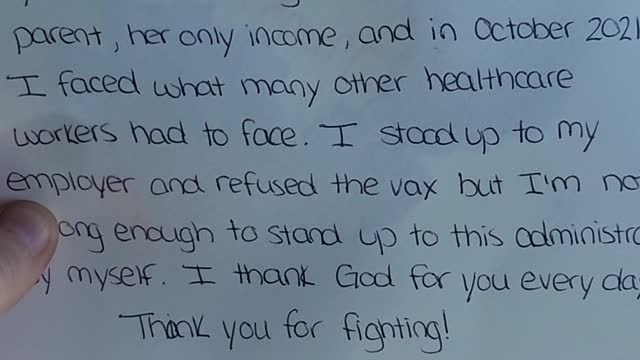 parent, her only income, and in October 2021
I faced what many other healthcare
workers had to face. I stood up to my
employer and refused the vax but I'm no
ong enough to stand up to this administra
y myself. I thank God for you every da
Thank you for fighting!